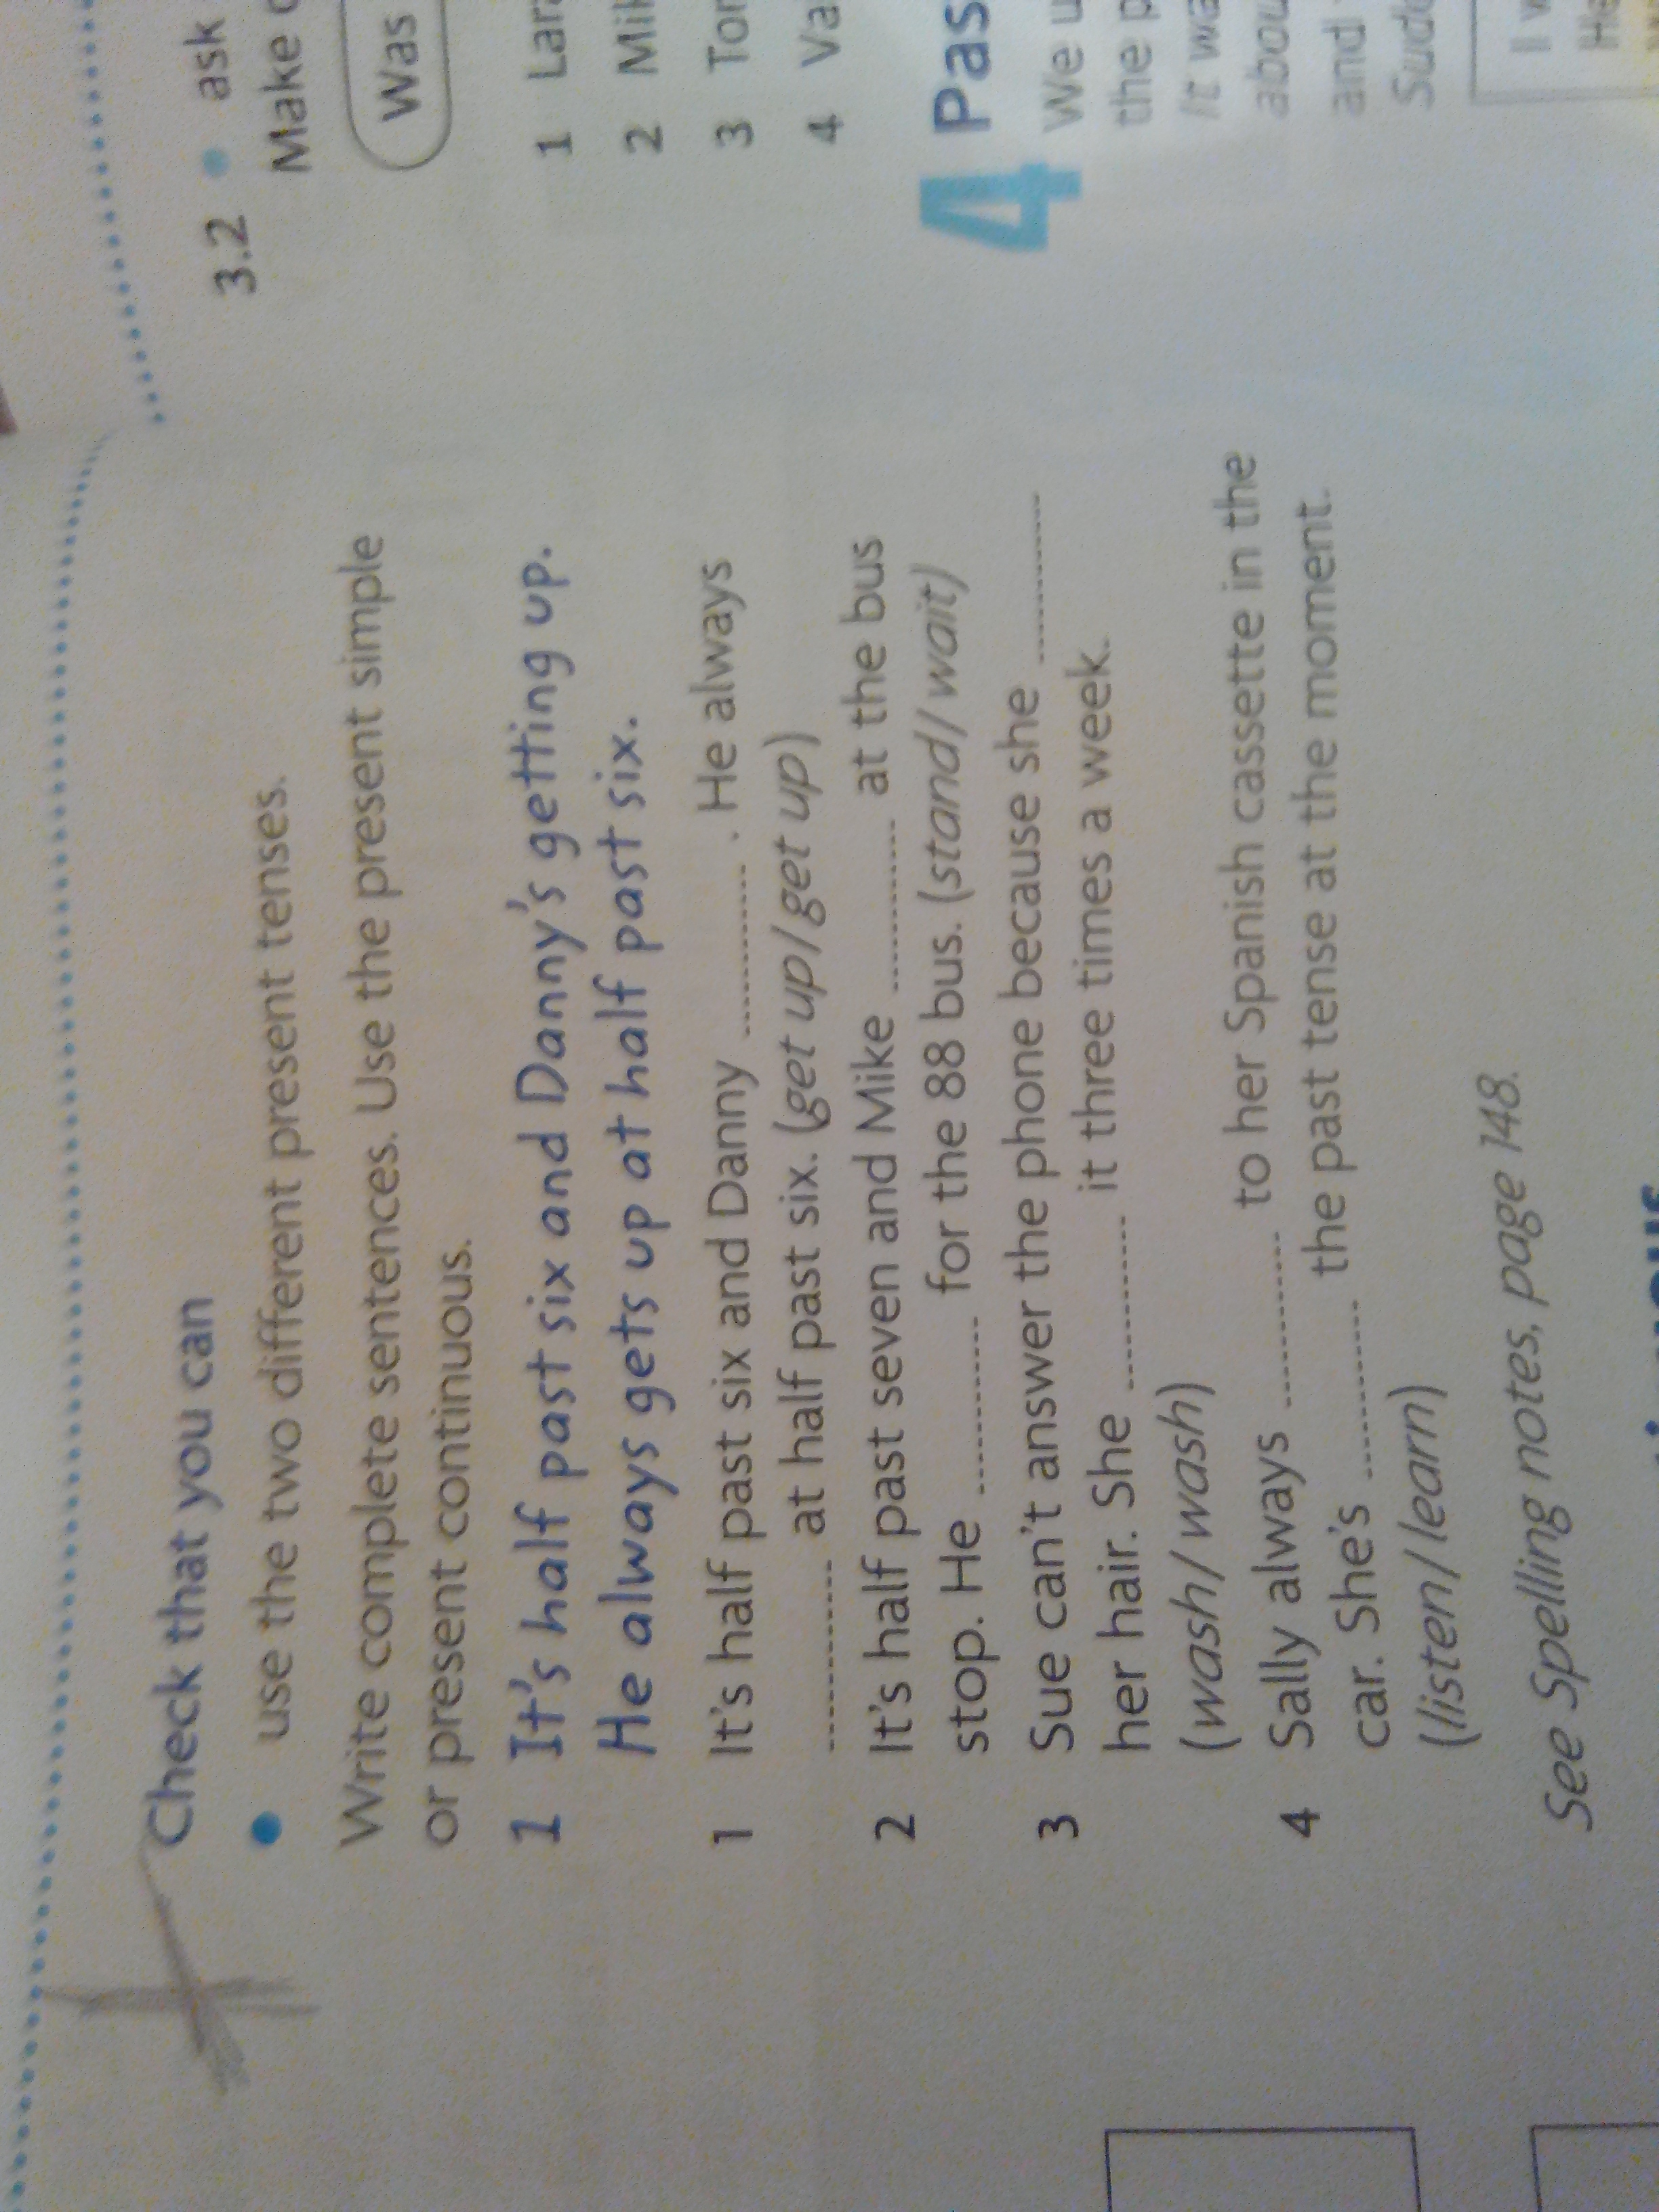 Check that you can
• use the two different present tenses.
Write complete sentences. Use the present simple
or present continuous.
1 It's half past six and Danny's getting up.
He always gets up at half past six.
1 It's half past six and Danny ............ . He always
............ at half past six. (get up/get up)
2 It's half past seven and Mike ............ at the bus
stop. He ............ for the 88 bus. (stand/wait)
3 Sue can't answer the phone because she ............
her hair. She ............ it three times a week.
(wash/wash)
4 Sally always ............ to her Spanish cassette in the
car. She's ............ the past tense at the moment.
(listen/learn)
See Spelling notes, page 148.
3.2 • ask
Make
Was
1
2
3
4
4
We
the
It
and
I